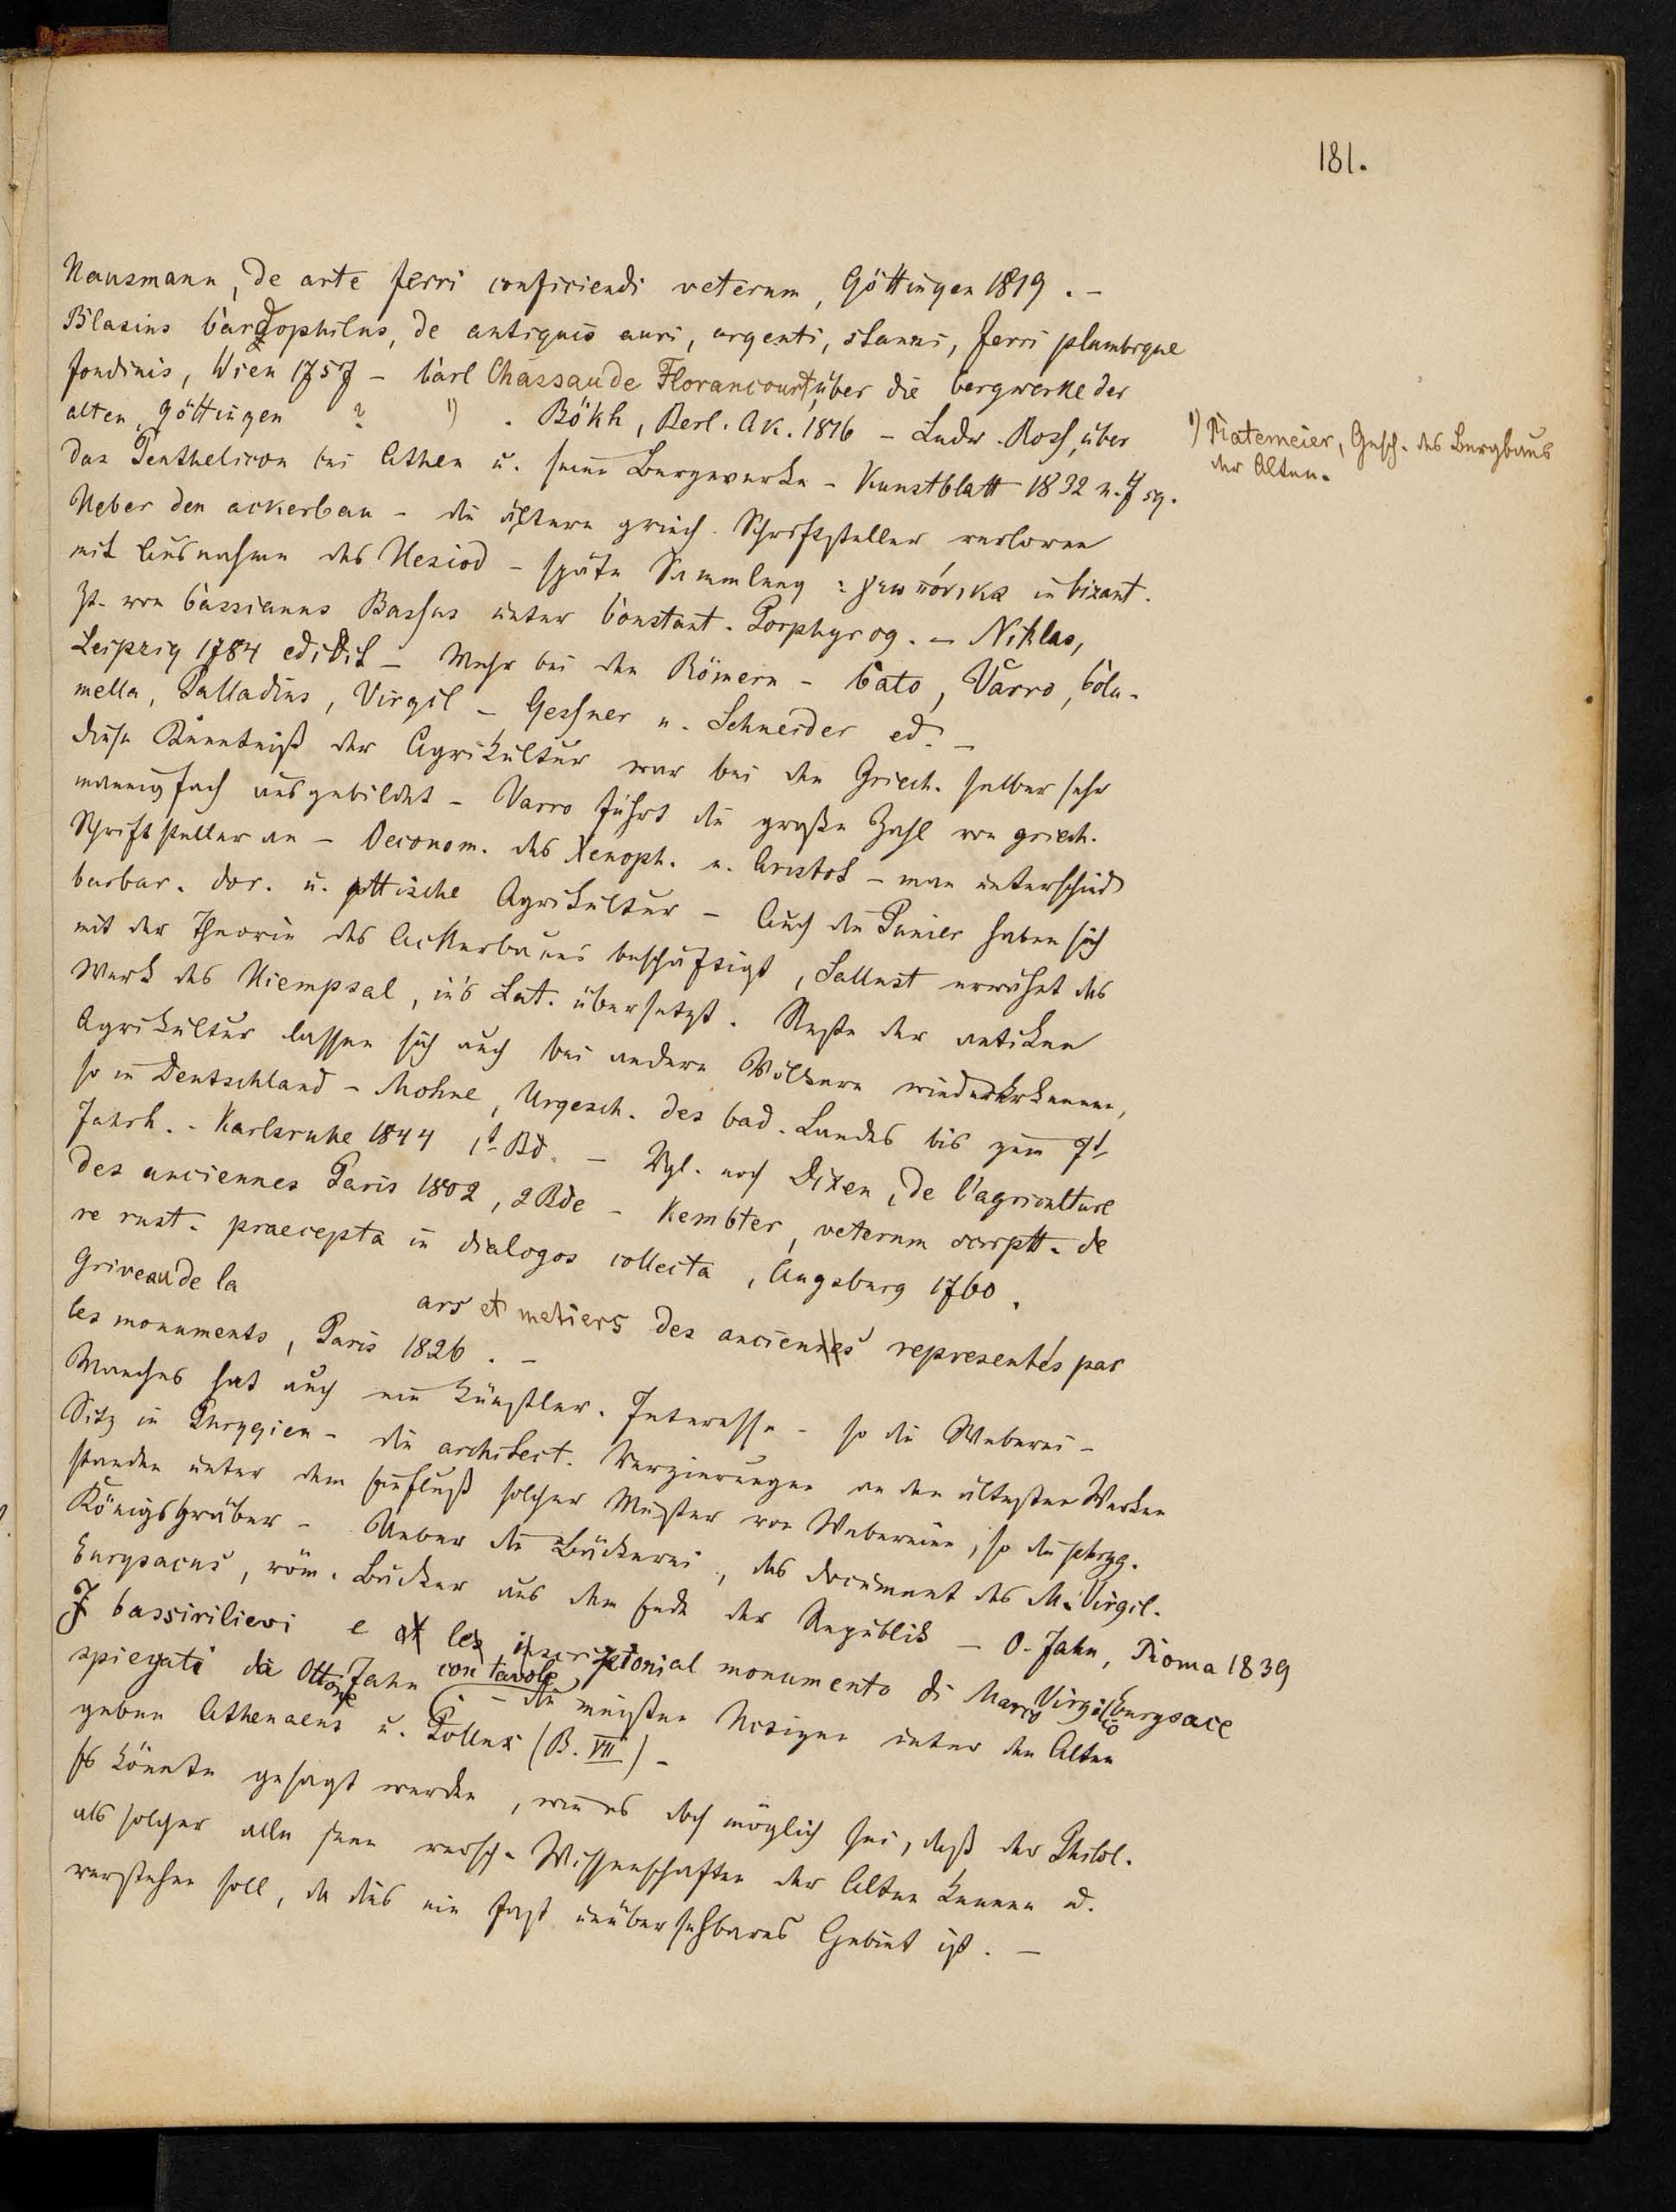 181.
Hausmann, de arte ferri conficiendi veterum, Göttingen 1819. -
Blasius Cardophilus, de antiquis auri, argenti, stanni, ferri plumbique
fondinis, Wien 1757 - Carl Chassaude Florancourt, über die bergwerke der
alten, Göttingen ? 1) . Bökh, Berl. Ak. 1816 - Ludw. Ross, über
das Penthelicon bei Athen u. seine Bergwerke - Kunstblatt 1832 n. 7 sq.
Ueber den ackerbau - die ältern griech. Schriftsteller verloren
mit Ausnahme des Hesiod - späte Sammlung : γεωπόνικα in bizant.
Zt. von Cassianus Bassus unter Constant. Porphyrog. - Niklas,
Leipzig 1784 edidit - Mehr bei den Römern - Cato, Varro, Colu-
mella, Palladius, Virgil - Gessner u. Schneider ed. -
diese Kenntniß der Agrikultur war bei den Griech. selber sehr
mannigfach ausgebildet - Varro führt die große Zahl von griech.
Schriftsteller an - Oeconom. des Xenoph. u. Aristot - man unterschied
barbar. dor. u. attische Agrikultur - Auch die Punier haben sich
mit der Theorie des Ackerbaues beschäftigt, Sallust erwähnt das
Werk des Hiempsal, in's Lat. übersetzt. Reste der antiken
Agrikultur lassen sich auch bei andern Völkern wiedererkennen,
so in Deutschland - Mohne, Urgesch. des bad. Landes bis zum 7t
Jahrh. - Karlsruhe 1844 1t Bd. - Vgl. noch Dixen, de l'agriculture
des anciennes Paris 1802, 2 Bde - Kembter, veterum scriptt. de
re rust. praecepta in dialogos collecta, Augsburg 1760.
Griveau de la ars et metiers des anciennes representés par
les monuments, Paris 1826. -
Manches hat auch ein künstler. Interesse - so die Weberei -
Sitz in Phrygien - die architect. Verzierungen an den ältesten Werken
standen unter dem Einfluß solcher Muster von Webereien, so die phryg.
Königsgräber - Ueber die Bäckerei, das document des M. Virgil.
Eurysaces, röm. Bäcker aus dem Ende der Republik - O. Jahn, Roma 1839
I bassirilievi e le inscriptioni al monumento di Marco Virgilio Eurysace
spiegati da Ottone Jahn con tavole - die meisten Notizen unter den Alten
geben Athenaeus u. Pollux (B. VII) -
Es könnte gesagt werden, wie es doch möglich sei, daß der Philol.
als solcher alle jene versch. Wissenschaften der Alten kennen u.
verstehen soll, da dies ein fast unübersehbares Gebiet ist. -
1) Riatemeier, Gesch. des Bergbaus
der Alten.